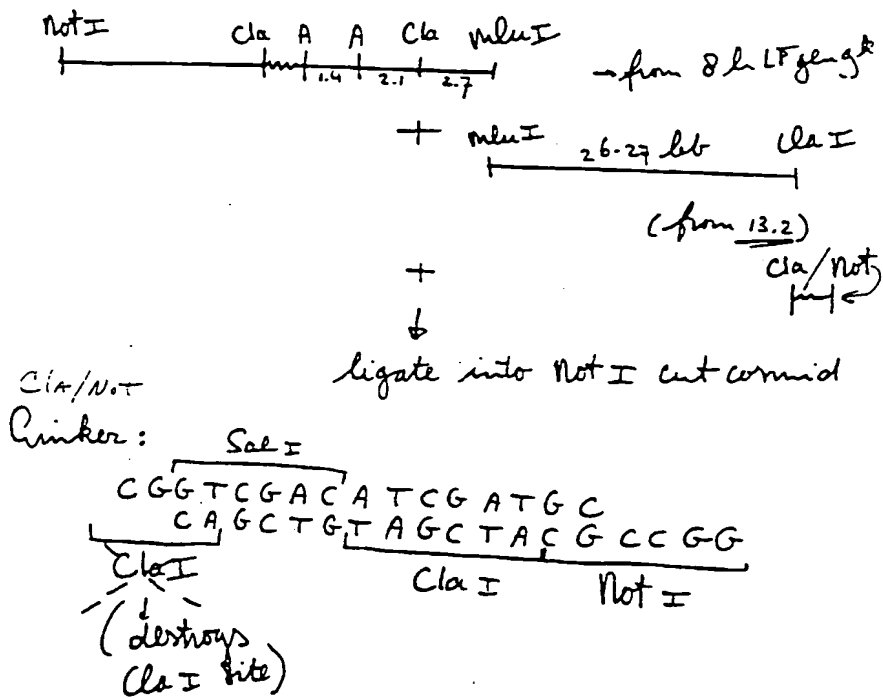 Not I Cla A A Cla Mlu I
1.4 2.1 2.7 → from 8 h LF
+ Mlu I 26-27 kb Cla I
(from 13.2)
+ Cla/Not
ligate into Not I cut cosmid
Cla/Not
Linker:
Sal I
CGGTCGACATCGATGC
CAGCTGTAGCTACGCCGG
Cla I Cla I Not I
(destroys
Cla I site)